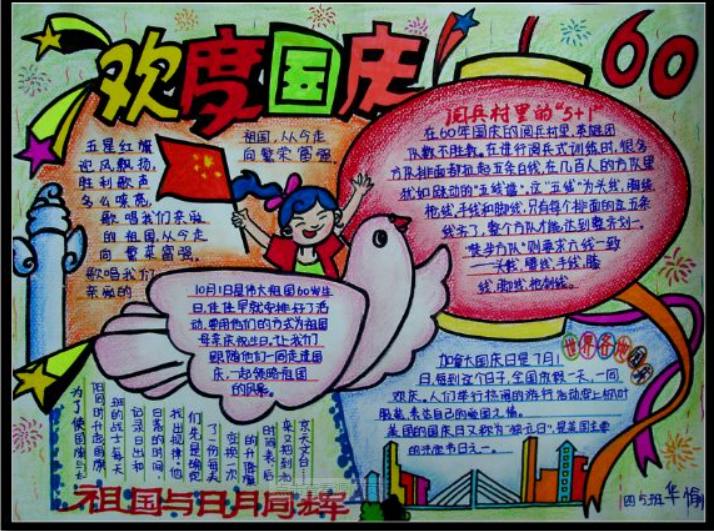 欢度国庆
60
五星红旗
迎风飘扬,
胜利歌声
多么嘹亮,
歌唱我们亲爱
的祖国,从今走
向繁荣富强。
歌唱我们
亲爱的
祖国,从今走
向繁荣富强。
阅兵村里的“5+1”
在60年国庆的阅兵村里,英雄团
队数不胜数。在进行阅兵式训练时,很多
方队排面都拉起五条白线,在几百人的方队里
犹如跃动的“五线谱”,这“五线”为头线,胸线
枪线,手线和脚线,只有每个排面的立五条
线齐了,整个方队才能达到整齐划一。
“徒步方队”则要求六线一致
——头线,臂线,手线,腿
线,脚线,枪刺线。
10月1日是伟大祖国60岁生
日,佳佳早就安排好了活
动,要用他们的方式为祖国
母亲庆祝生日,让我们
跟随他们一同走进国
庆,一起领略祖国
的风景。
世界各地
加拿大国庆日是7月1
日,每到这个日子,全国放假一天,一同
欢庆。人们举行热闹的游行活动穿上枫叶
服装,表达自己的爱国之情。
美国的国庆日又称为“独立日”,是美国主要
的法定节日之一。
京天文台
来又把到
时间表,后
的升降旗
变换一次
了一份每天
们先是确定
我出规律,他
日落的时间,
记录日出和
班的战士每天
阳同时升起,国旗
为了使国旗与太
祖国与日月同辉
四5班 华